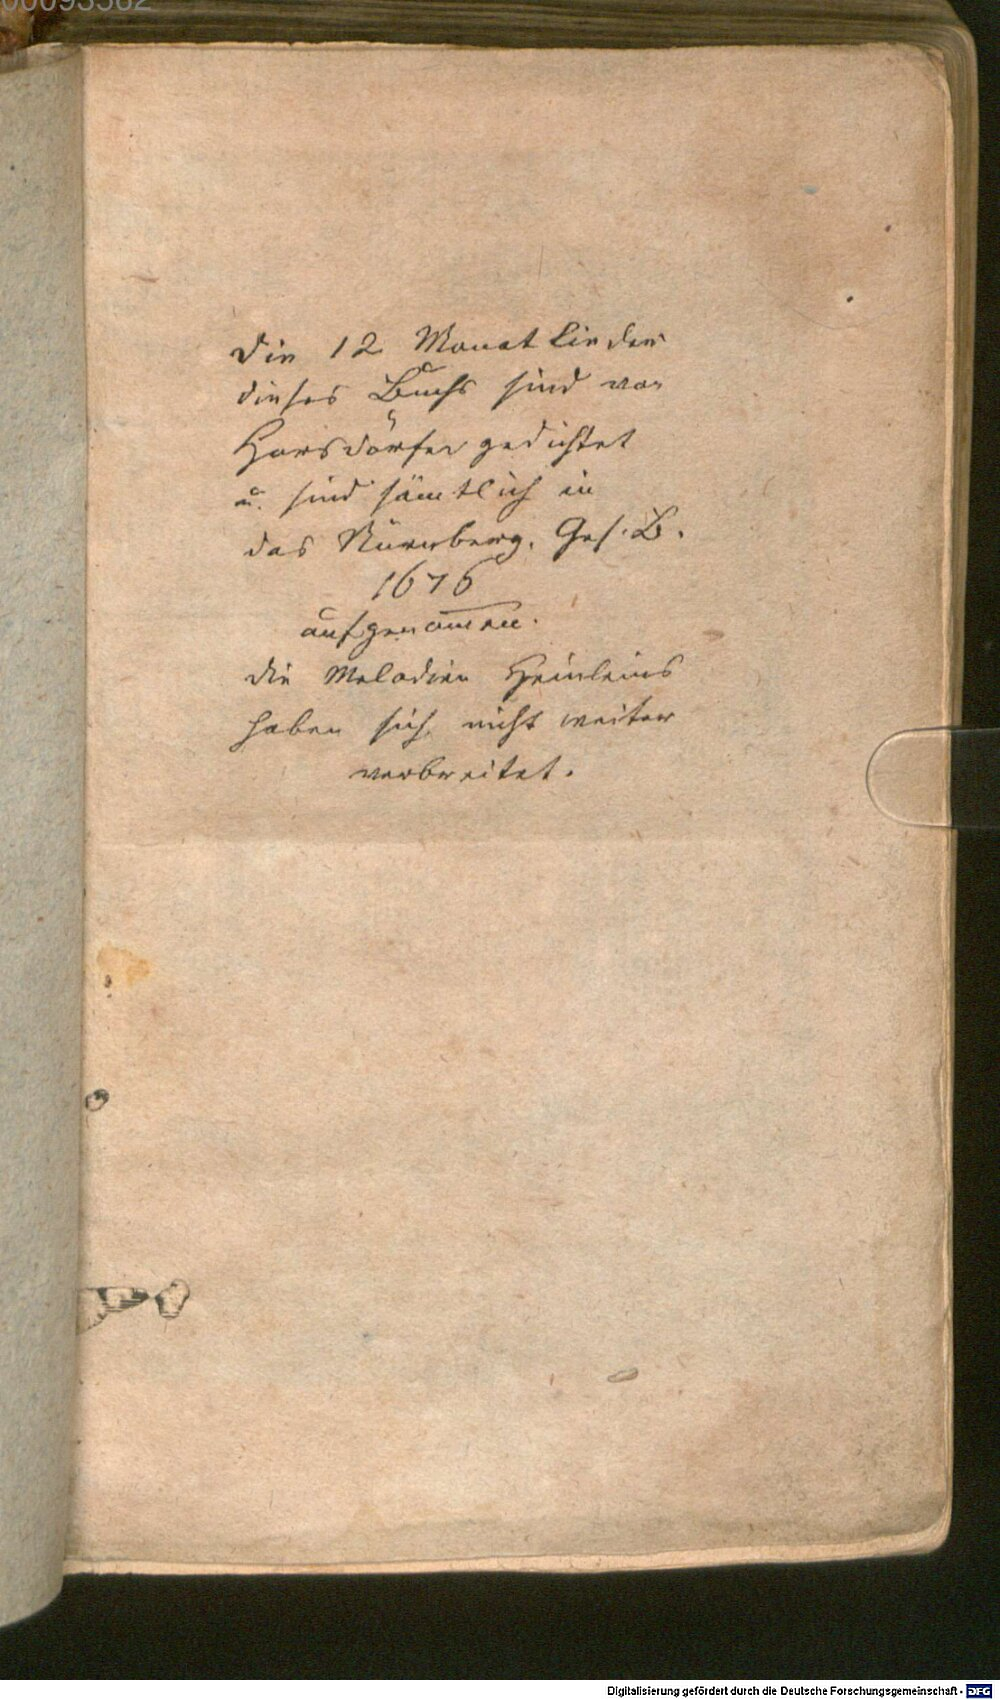 00093562
Die 12 Monat Lieder
dieses Buchs sind von
Harsdörfer gedichtet
u. sind sämtlich in
das Nürnberg. Ges. B.
1676
aufgenom̅en.
die Melodien Heinleins
haben sich nicht weiter
verbreitet.
Digitalisierung gefördert durch die Deutsche Forschungsgemeinschaft - DFG